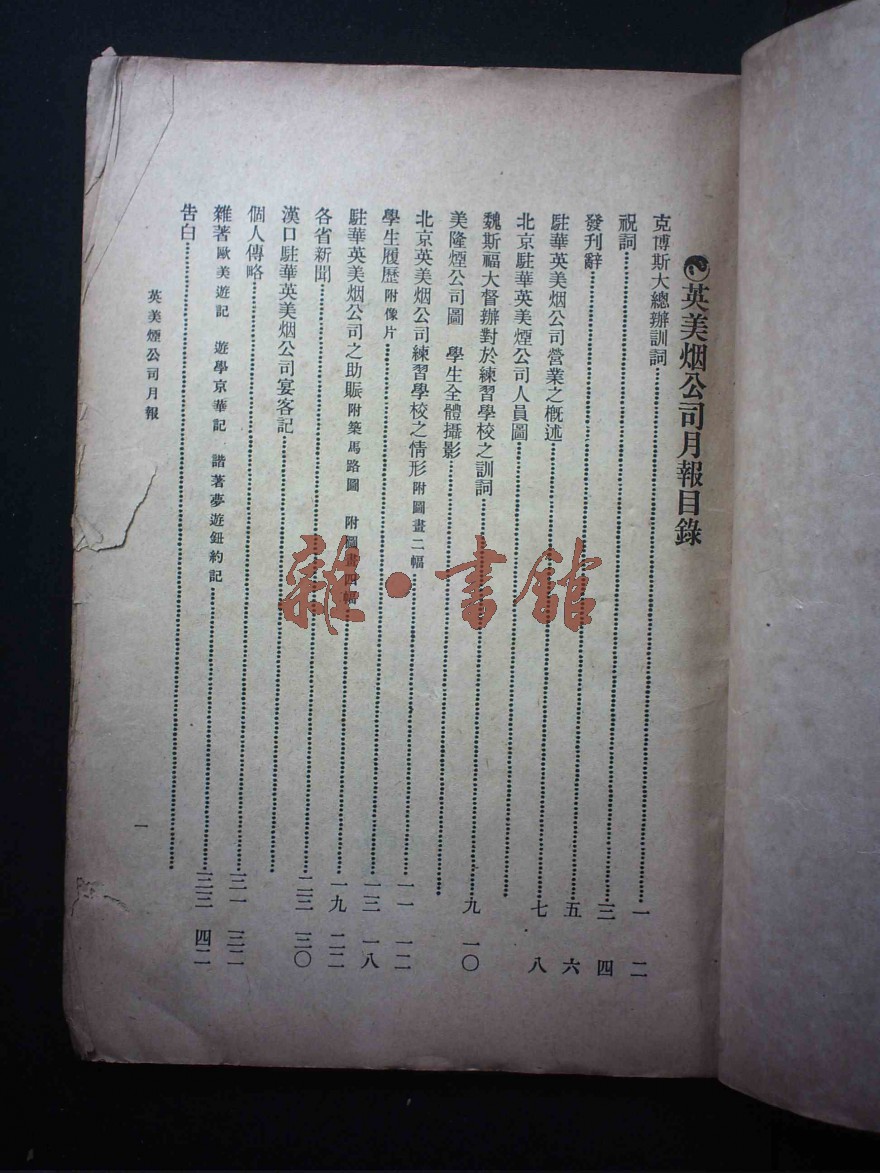 英美烟公司月報目錄
克博斯大總辦訓詞……一 二
祝詞……三 四
發刊辭……五 六
駐華英美烟公司營業之概述……七 八
北京駐華英美煙公司人員圖……
魏斯福大督辦對於練習學校之訓詞……九 一〇
美隆煙公司圖 學生全體攝影……
北京英美烟公司練習學校之情形 附圖畫二幅……一一 一二
學生履歷 附像片……一三 一八
駐華英美烟公司之助賑 附築馬路圖 附圖畫四幅……一九 二二
各省新聞……二三 三〇
漢口駐華英美烟公司宴客記……
個人傳略……三一 三二
雜著 歐美遊記 遊學京華記 諧著夢遊鈕約記……三三 四二
告白……
英美煙公司月報
一
雜·書館